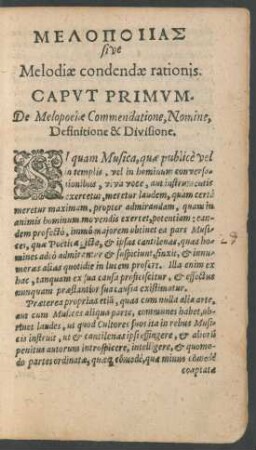 ΜΕΛΟΠΟΙΙΑΣ
sive
Melodiæ condendæ rationis.
CAPVT PRIMVM.
De Melopoeiæ Commendatione, Nomine,
Definitione & Divisione.
SI quam Musica, quæ publicè vel
in templis, vel in hominum conversa-
tionibus, viva voce, aut instrumentis
exercetur, meretur laudem, quam certè
meretur maximam, propter admirandam, quam in
animis hominum movendis exercet, potentiam; eandem
profectò, immò majorem obtinet ea pars Musi-
ces, quæ Poëtica dicta, & ipsas cantilenas, quas ho-
mines adeò admirantur & suspiciunt fingit, & innu-
meras alias quotidie in lucem profert. Illa enim ex
hac, tanquam ex sua causa proficiscitur, & effectus
nunquam præstantior sua causa existimatur.
Præterea propriæ etiã, quas cum nulla alia arte,
aut cum Musices aliqua parte, communes habet, ob-
tinet laudes, ut quod Cultores suos ita in rebus Musi-
cis instruit, ut & cantilenas ipsi effingere, & aliorũ
penitus autorum introspicere, intelligere, & quomo-
do partes ordinatæ, quæq; quæ minus
coaptatæ